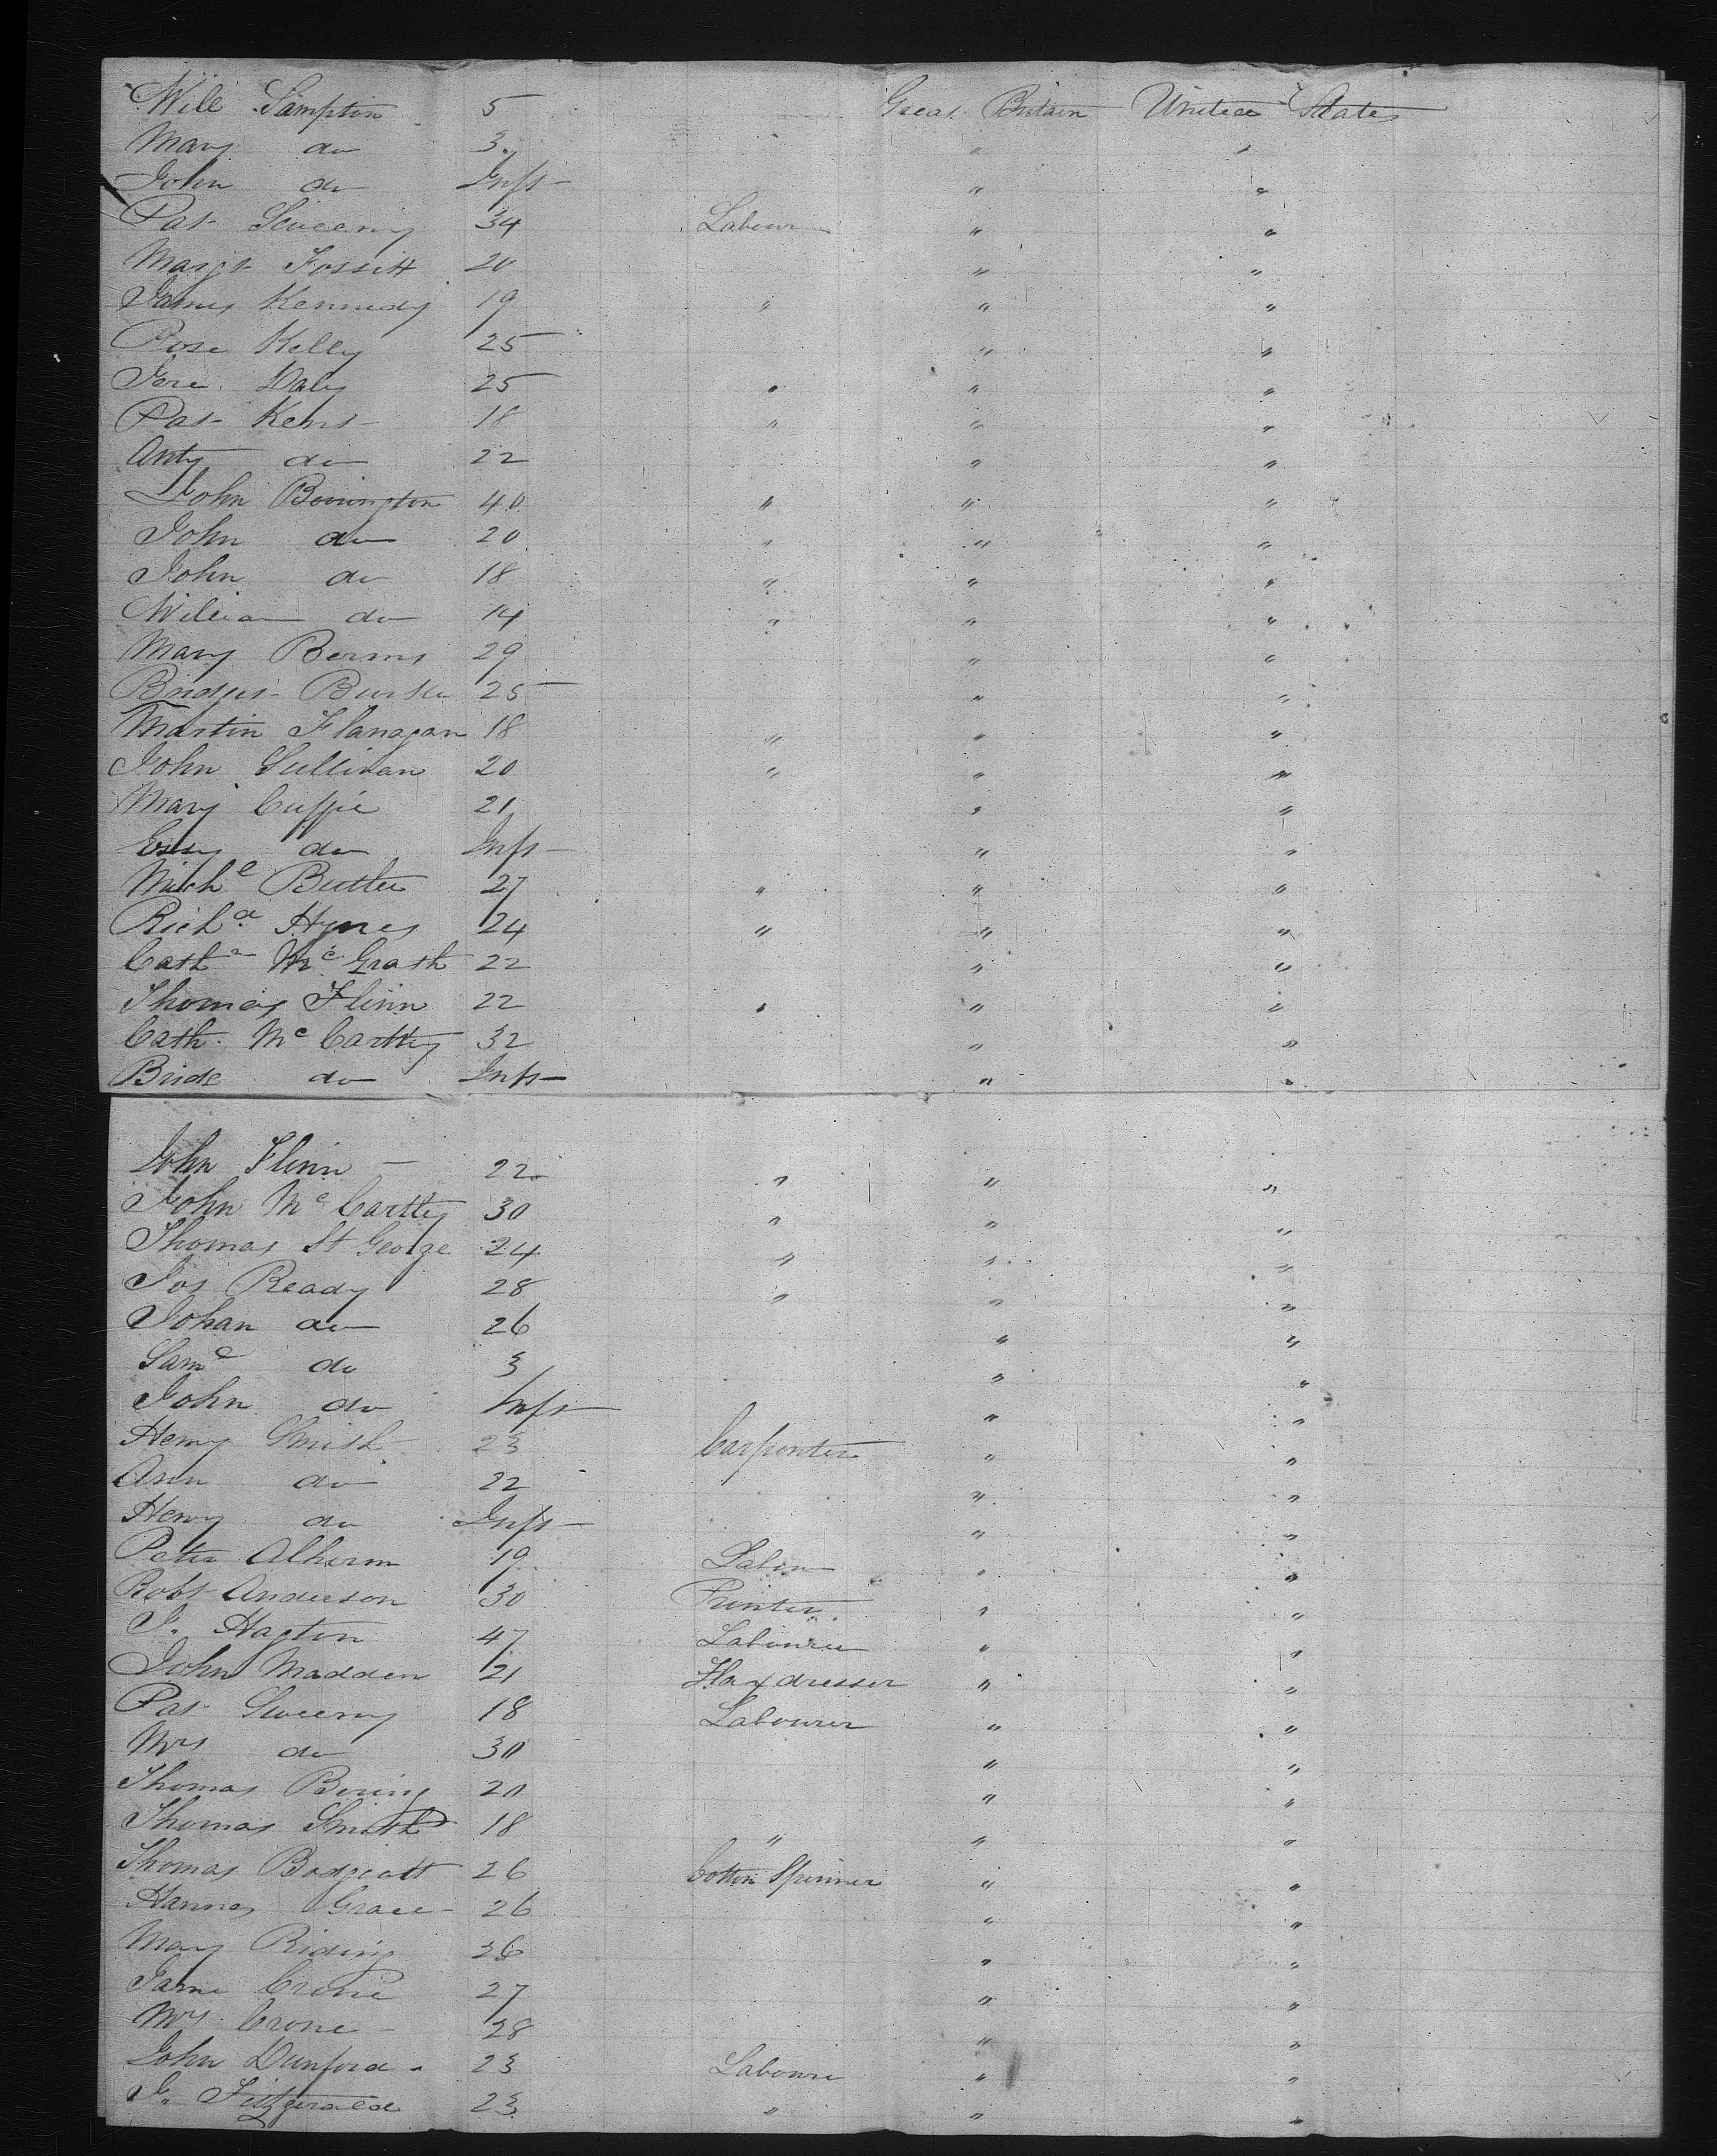 Will Sampton 5 Great Britain United States
Mary do 3 " "
John do Inft " "
Pat Sweeny 34 Labour " "
Margt Fossitt 20 " "
James Kennedy 19 " " "
Rose Kelly 25 " "
Jere. Daly 25 " " "
Pat Kent 18 " " "
Anty do 22 " "
John Bonington 40 " " "
John do 20 " " "
John do 18 " " "
William do 14 " " "
Mary Berms 29 " "
Bridget Burke 25 " "
Martin Flanagan 18 " " "
John Sullivan 20 " " "
Mary Cuffie 21 " "
do Inft " "
Michl Butler 27 " " "
Richd Hynes 24 " " "
Cathe McGrath 22 " "
Thomas Flinn 22 " " "
Cath. McCartthy 32 " "
Bride do Inft " "
John Flinn 22 " " "
John McCartthy 30 " " "
Thomas St George 24 " " "
Jos Ready 28 " " "
Johan do 26 " "
Saml do 3 " "
John do Inft " "
Henry Smith 23 Carpenter " "
Ann do 22 " "
Henry do Inft " "
Peter Alherm 19 Labour " "
Robt Anderson 30 Printer " "
J. Hagton 47 Labourer " "
John Madden 21 Flax dresser " "
Pat Sweeny 18 Labourer " "
Mrs do 30 " "
Thomas Bering 20 " "
Thomas Smith 18 " " "
Thomas Bodgcott 26 Cotton Spinner " "
Hannah Grace 26 " "
Mary Riding 26 " "
Jame Crone 27 " "
Mrs Crone 28 " "
John Dunford 23 Laboure " "
J. Fitzgerald 23 " " "